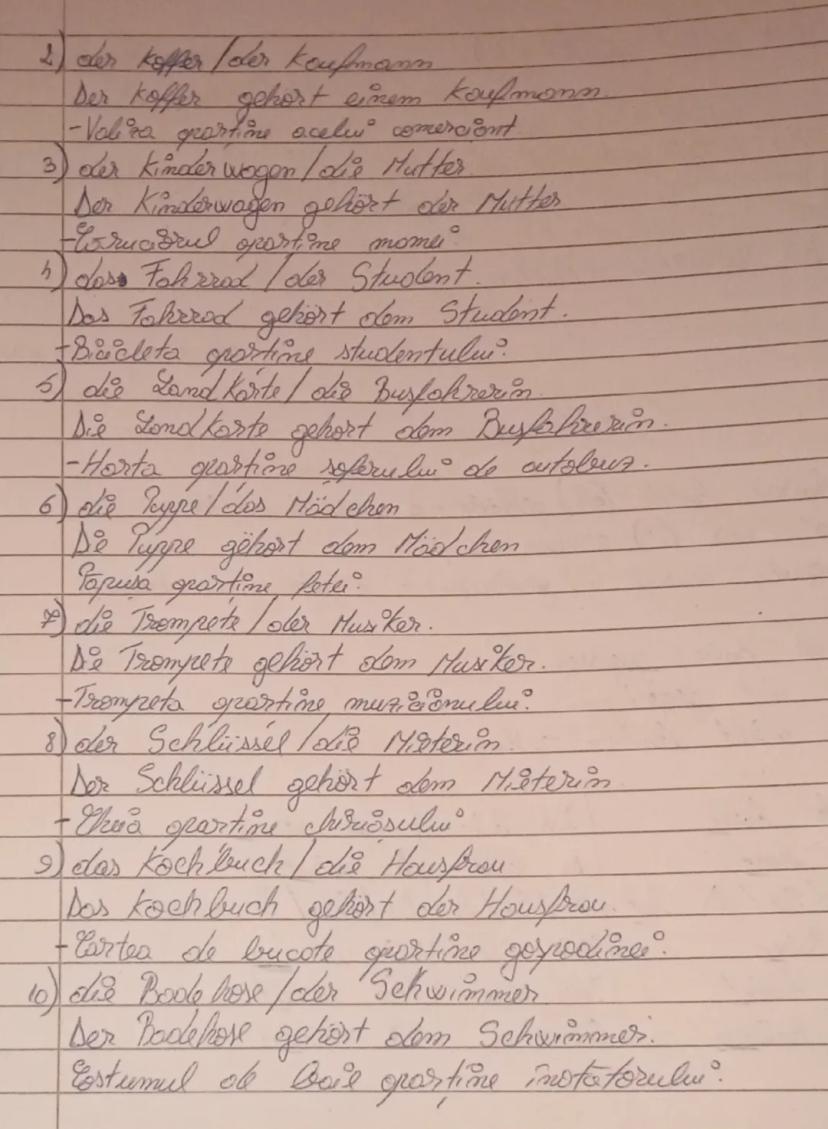 2) der Koffer / der Kaufmann
Der Koffer gehört einem Kaufmann.
- Valiza aparține acelui comerciant
3) der Kinderwagen / die Mutter
Der Kinderwagen gehört der Mutter
- Căruciorul aparține mamei
4) das Fahrrad / der Student.
Das Fahrrad gehört dem Student.
- Bicicleta aparține studentului.
5) die Landkarte / die Busfahrerin
Die Landkarte gehört dem Busfahrerin.
- Harta aparține șoferului de autobuz.
6) die Puppe / das Mädchen
Die Puppe gehört dem Mädchen
Păpușa aparține fetei.
7) die Trompete / der Musiker.
Die Trompete gehört dem Musiker.
- Trompeta aparține muzicianului.
8) der Schlüssel / die Mieterin
Der Schlüssel gehört dem Mieterin
- Cheia aparține chiriașului
9) das Kochbuch / die Hausfrau
Das Kochbuch gehört der Hausfrau.
- Cartea de bucate aparține gospodinei.
10) die Badehose / der Schwimmer
Der Badehose gehört dem Schwimmer.
Costumul de baie aparține înotătorului.